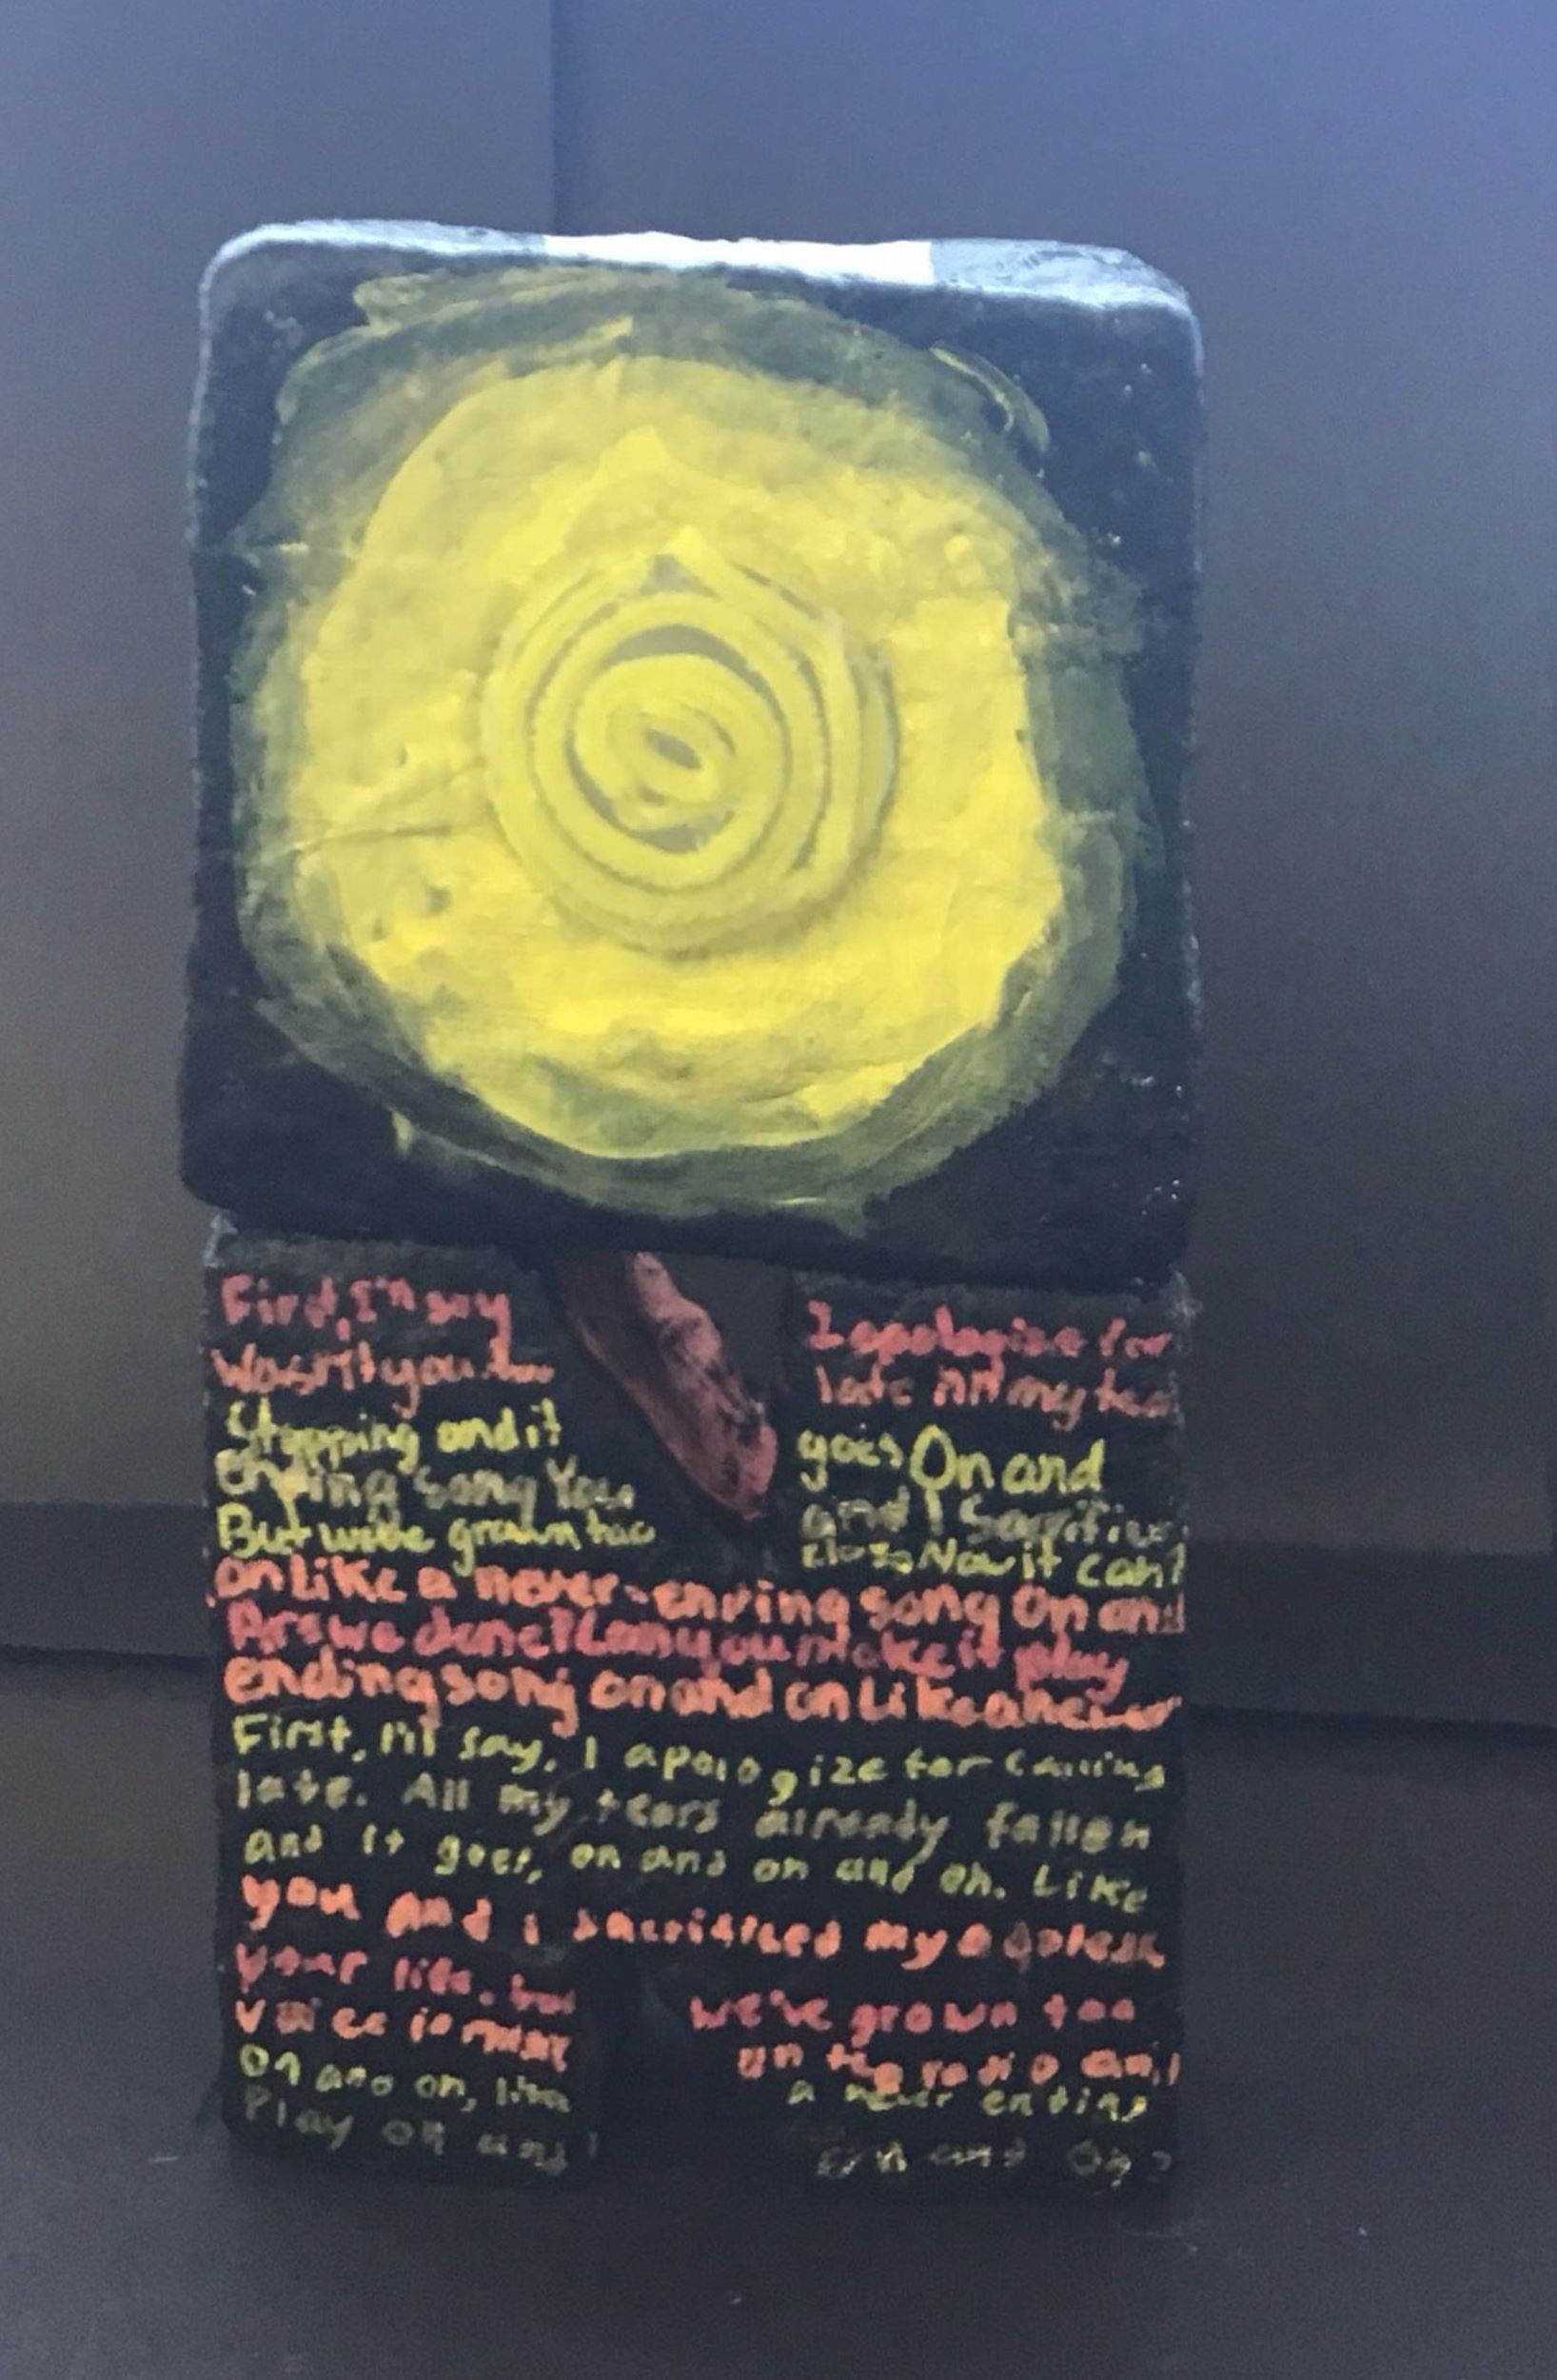 First, I'll say I apologize for
Wasn't you late All my tea
Stopping and it goes On and
ending song You and I Sacrifice
But we've grown too close Now it can't
on Like a never-enring song On and
Are we done? Can you make it play
ending song on and on Like a never
First, I'll say, I apologize for calling
late. All my tears already fallen
and it goes, on and on and on. Like
you and i sacrisiced my
your life. but we've grown too
voice is on the radio and
on and on, like a never ending
Play on and on and on?